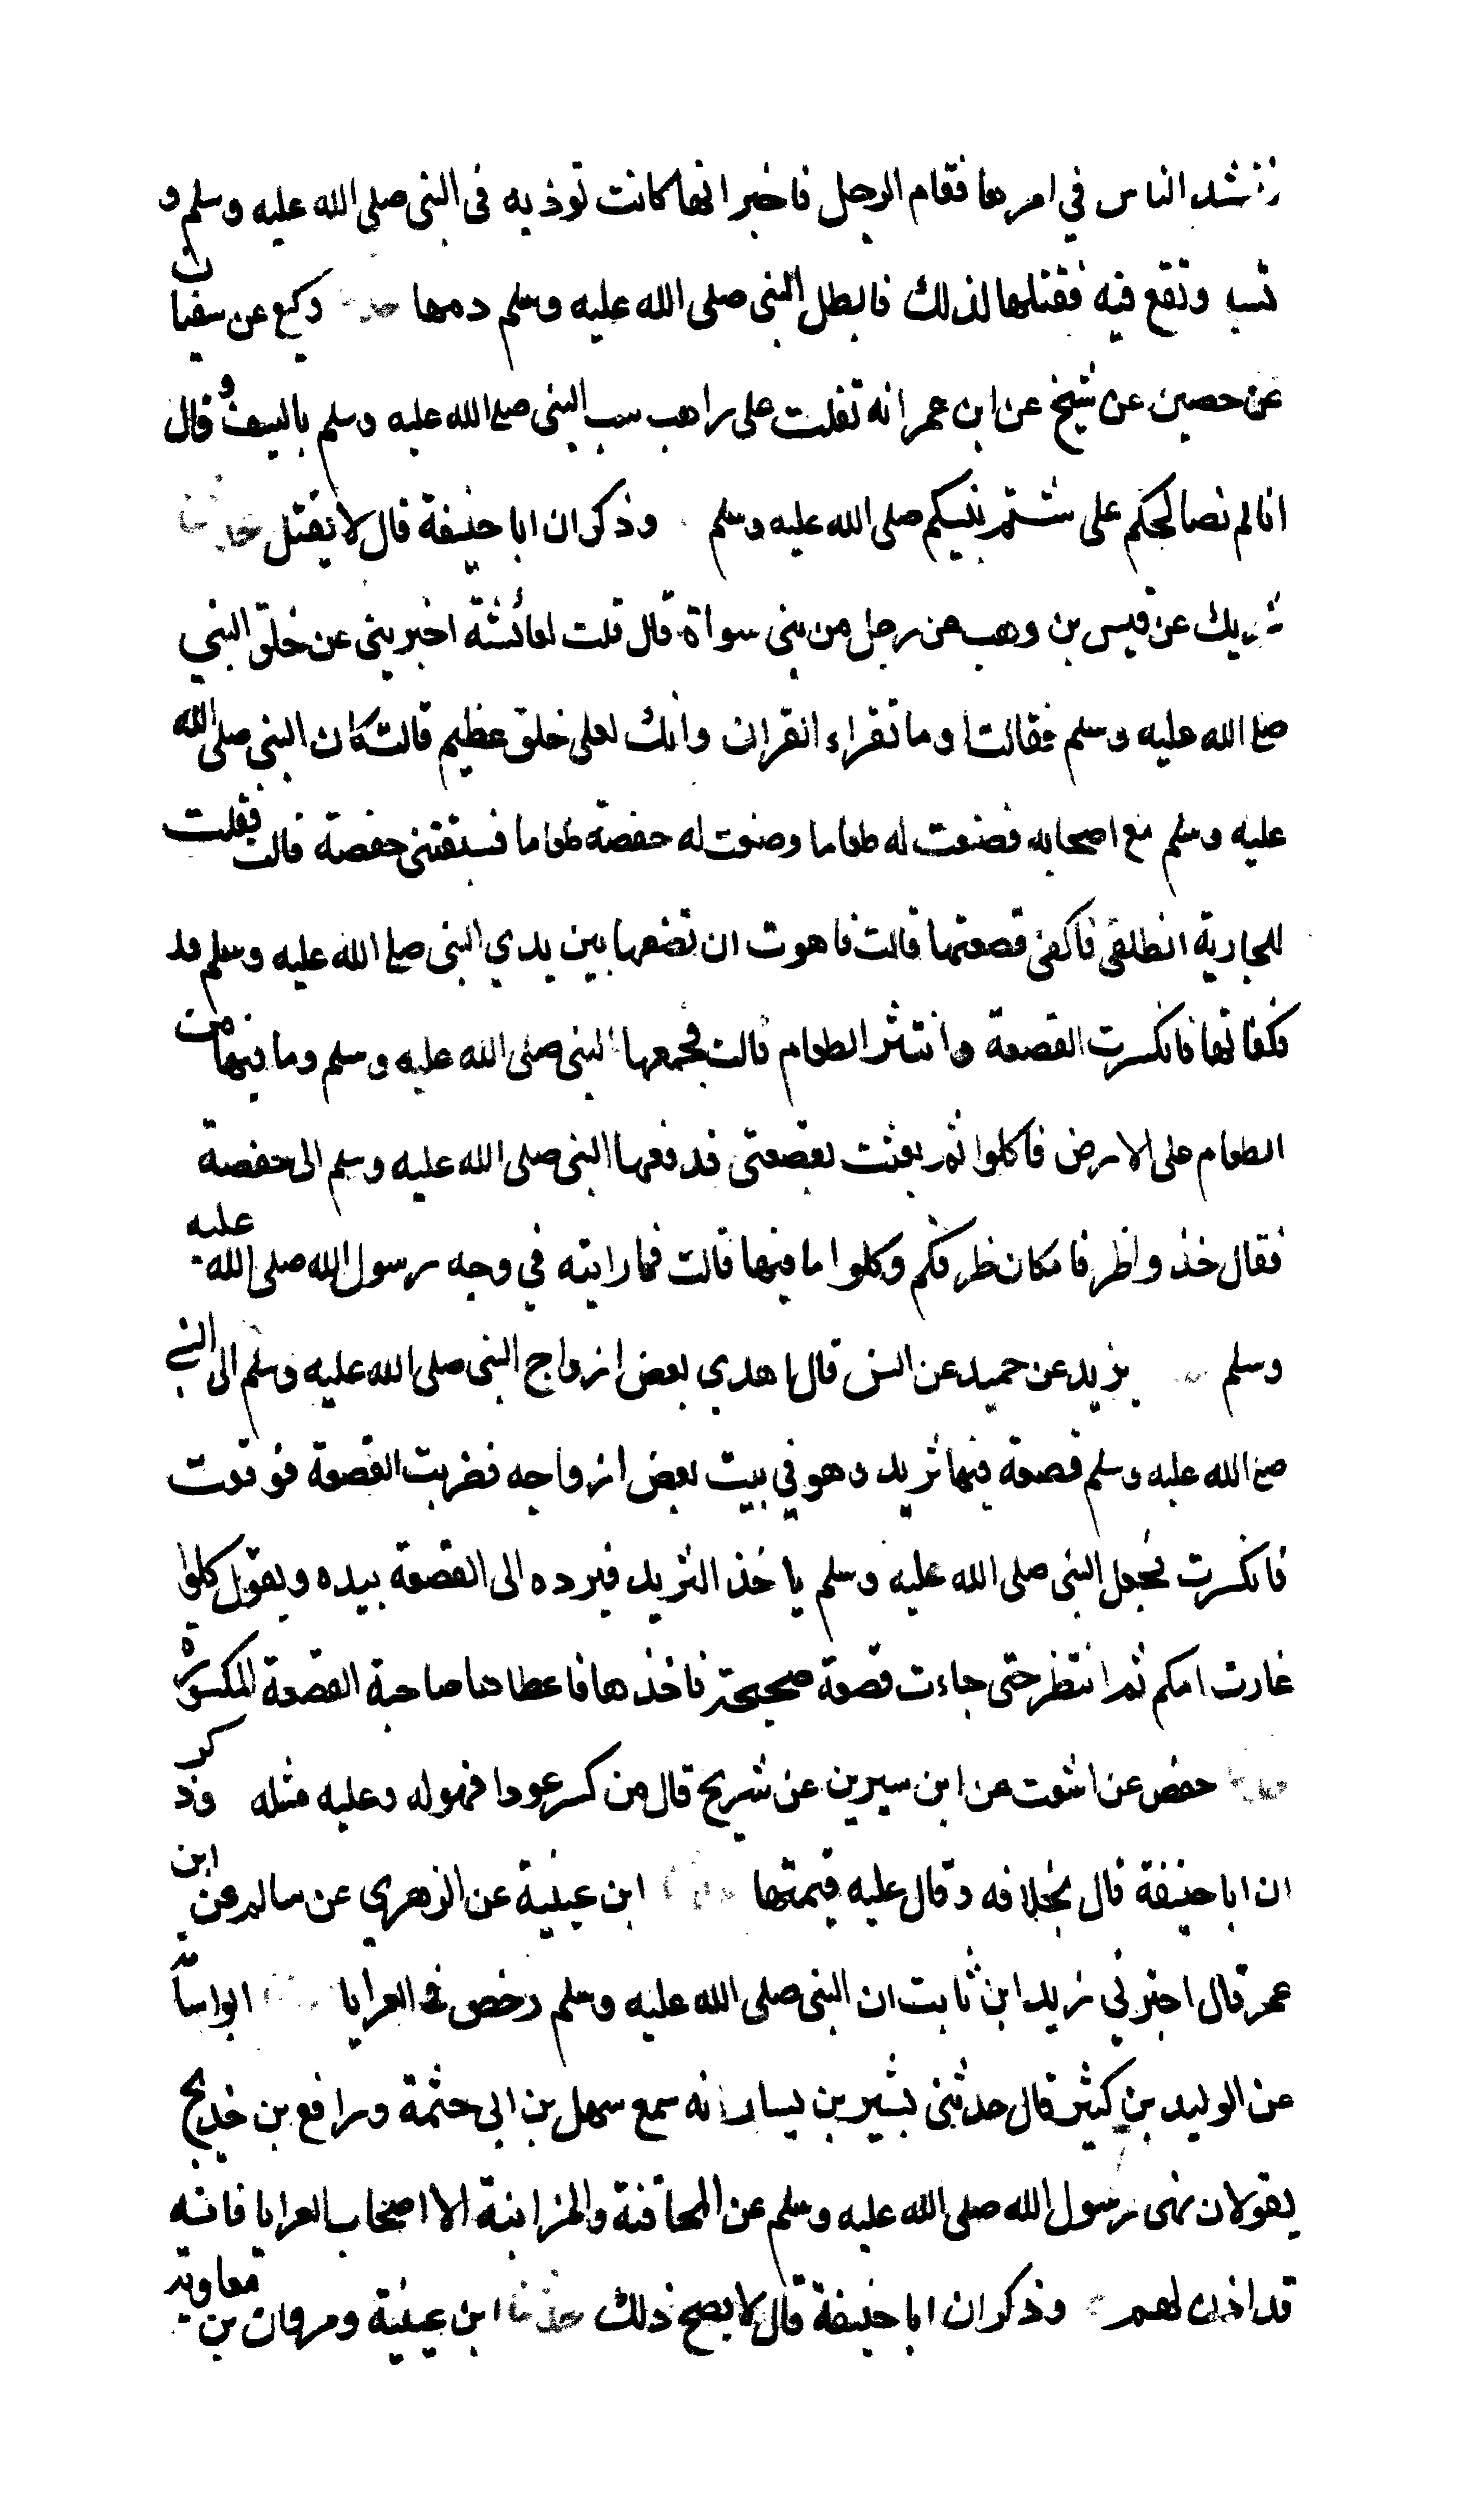 نشد الناس في امرها فقام الرجل فاخبر انها كانت توذيه فى النبى صلى الله عليه وسلم و
تسبه وتقع فيه فقتلها لذلك فابطل النبى صلى الله عليه وسلم دمها وكيع عن سفيان
عن حصين عن شيخ عن ابن عمر انه تفلت على راهب سب النبى صلى الله عليه وسلم بالسيف وقال
انا لم نصالحكم على شتم نبيكم صلى الله عليه وسلم وذكر ان ابا حنيفة قال لا يقتل حدثنا
شريك عن قيس بن وهب عن رجل من بنى سواة قال قلت لعائشة اخبرينى عن خلق النبي
صلى الله عليه وسلم فقالت وما تقراء القران وانك لعلى خلق عظيم قالت كان النبى صلى الله
عليه وسلم مع اصحابه فصنعت له طعاما وصنعت له حفصة طعاما فسبقتنى حفصة قالت فقلت
للجارية انطلقى فاكفئ قصعتها قالت فاهوت ان تضعها بين يدي النبى صلى الله عليه وسلم قد
فكفاتها فانكسرت القصعة وانتثر الطعام قالت فجمعها النبى صلى الله عليه وسلم وما فيها من
الطعام على الارض فاكلوا ثم بعثت بقصعتى فدفعها النبى صلى الله عليه وسلم الى حفصة
فقال خذوا ظرفا مكان ظرفكم وكلوا ما فيها قالت فما رايته في وجه رسول الله صلى الله عليه
وسلم يزيد عن حميد عن انس قال اهدى بعض ازواج النبى صلى الله عليه وسلم الى النبي
صلى الله عليه وسلم قصعة فيها ثريد وهو في بيت بعض ازواجه فضربت القصعة فوقعت
فانكسرت فجعل النبى صلى الله عليه وسلم ياخذ الثريد فيرده الى القصعة بيده ويقول كلوا
غارت امكم ثم انتظر حتى جاءت قصعة صحيحة فاخذها فاعطاها صاحبة القصعة المكسورة
حفص عن اشعث عن ابن سيرين عن شريح قال من كسر عودا فهوله وعليه مثله وذكر
ان ابا حنيفة قال بخلافه وقال عليه قيمتها ابن عيينة عن الزهري عن سالم عن ابن
عمر قال اخبرني زيد ابن ثابت ان النبى صلى الله عليه وسلم رخص في العرايا ابو اسامة
عن الوليد بن كثير قال حدثنى بشير بن يسار انه سمع سهل بن ابى حثمة ورافع بن خديج
يقولان نهى رسول الله صلى الله عليه وسلم عن المحاقنة والمزابنة الا اصحاب العرايا فانه
قد اذن لهم وذكر ان ابا حنيفة قال لا يصح ذلك حدثنا ابن عيينة ومروان بن معاوية